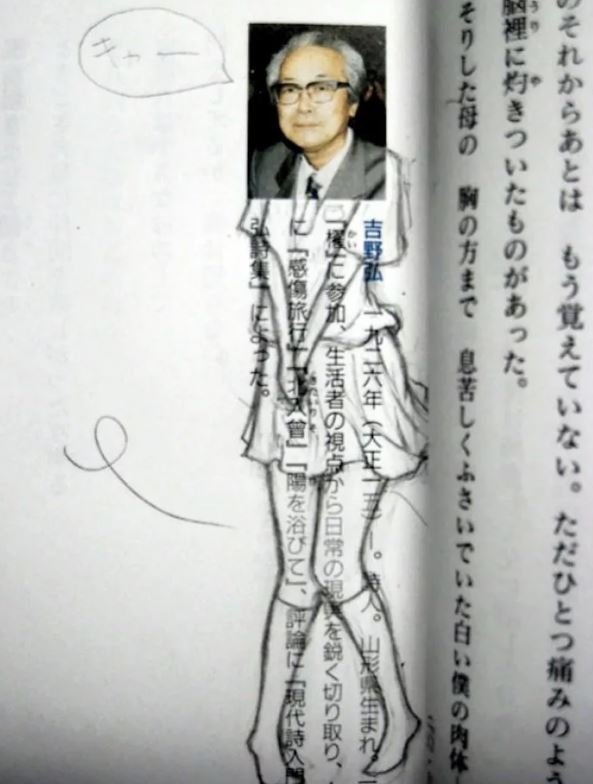 のそれからあとは　もう覚えていない。ただひとつ痛みのよう
脳裡に灼きついたものがあった。
そりした母の　胸の方まで　息苦しくふさいでいた白い僕の肉体
キャー
吉野弘　一九二六年（大正一五）―。詩人。山形県生まれ。
「櫂」に参加、生活者の視点から日常の現実を鋭く切り取り、
に「感傷旅行」「北入曽」「陽を浴びて」、評論に「現代詩入門
弘詩集」によった。